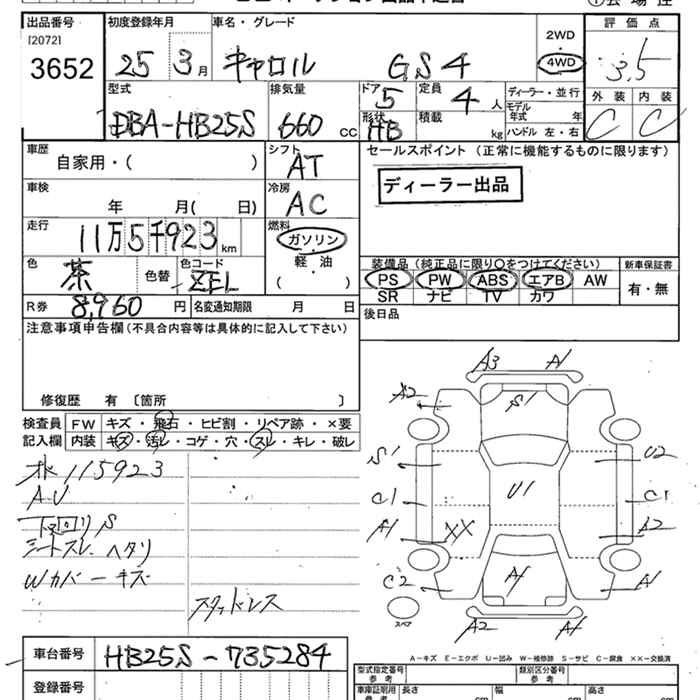 出品番号 初度登録年月 車名・グレード 評価点
[2072]
3652 25 3月 キャロル GS4 2WD 4WD 3.5
型式 排気量 ドア 定員 ディーラー・並行 外装 内装
DBA-HB25S 660 CC 5 4人 モデル年式 年 C C
形状 HB 積載 kg ハンドル 左・右
車歴 シフト セールスポイント (正常に機能するものに限ります)
自家用・( ) AT
ディーラー出品
車検 冷房
年 月( 日) AC
走行 燃料
11万5千923km ガソリン
軽・油
( )
色 茶 色替 色コード ZEL
装備品(純正品に限り○をつけてください) 新車保証書
PS PW ABS エアB AW 有・無
SR ナビ TV カワ
R券 8,960円 名変通知期限 月 日
後日品
注意事項申告欄(不具合内容等は具体的に記入して下さい)
修復歴 有 〔箇所 〕
検査員 FW キズ・飛石・ヒビ割・リペア跡・×要
記入欄 内装 キズ・汚レ・コゲ・穴・スレ・キレ・破レ
115923
AV
下回りS
シートスレ ヘタリ
Wカバーキズ
スタッドレス
A3 A1
A2 S1
S1 U2
C1 U1 C1
A1 XX A2
C2 A1 A1
スペア
A2 A1
A-キズ E-エクボ U-凹み W-補修跡 S-サビ C-腐食 ××-交換済
車台番号 HB25S-735284
登録番号
型式指定番号 参考 類別区分番号 参考
車庫証明用 参考 長さ cm 幅 cm 高さ cm